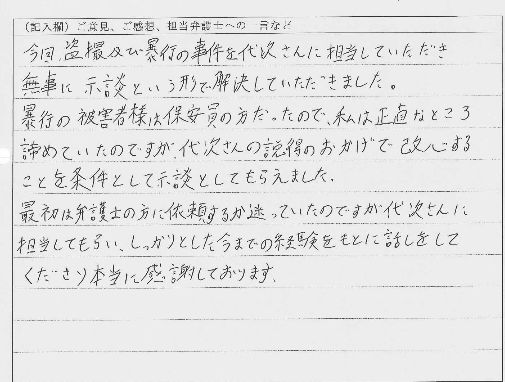 (記入欄) ご意見、ご感想、担当弁護士への一言など
今回、盗撮及び暴行の事件を代次さんに担当していただき
無事に示談という形で解決していただきました。
暴行の被害者様は保安員の方だったので、私は正直なところ
諦めていたのですが、代次さんの説得のおかげで改心する
ことを条件として示談としてもらえました。
最初は弁護士の方に依頼するか迷っていたのですが代次さんに
担当してもらい、しっかりとした今までの経験をもとに話しをして
くださり本当に感謝しております。